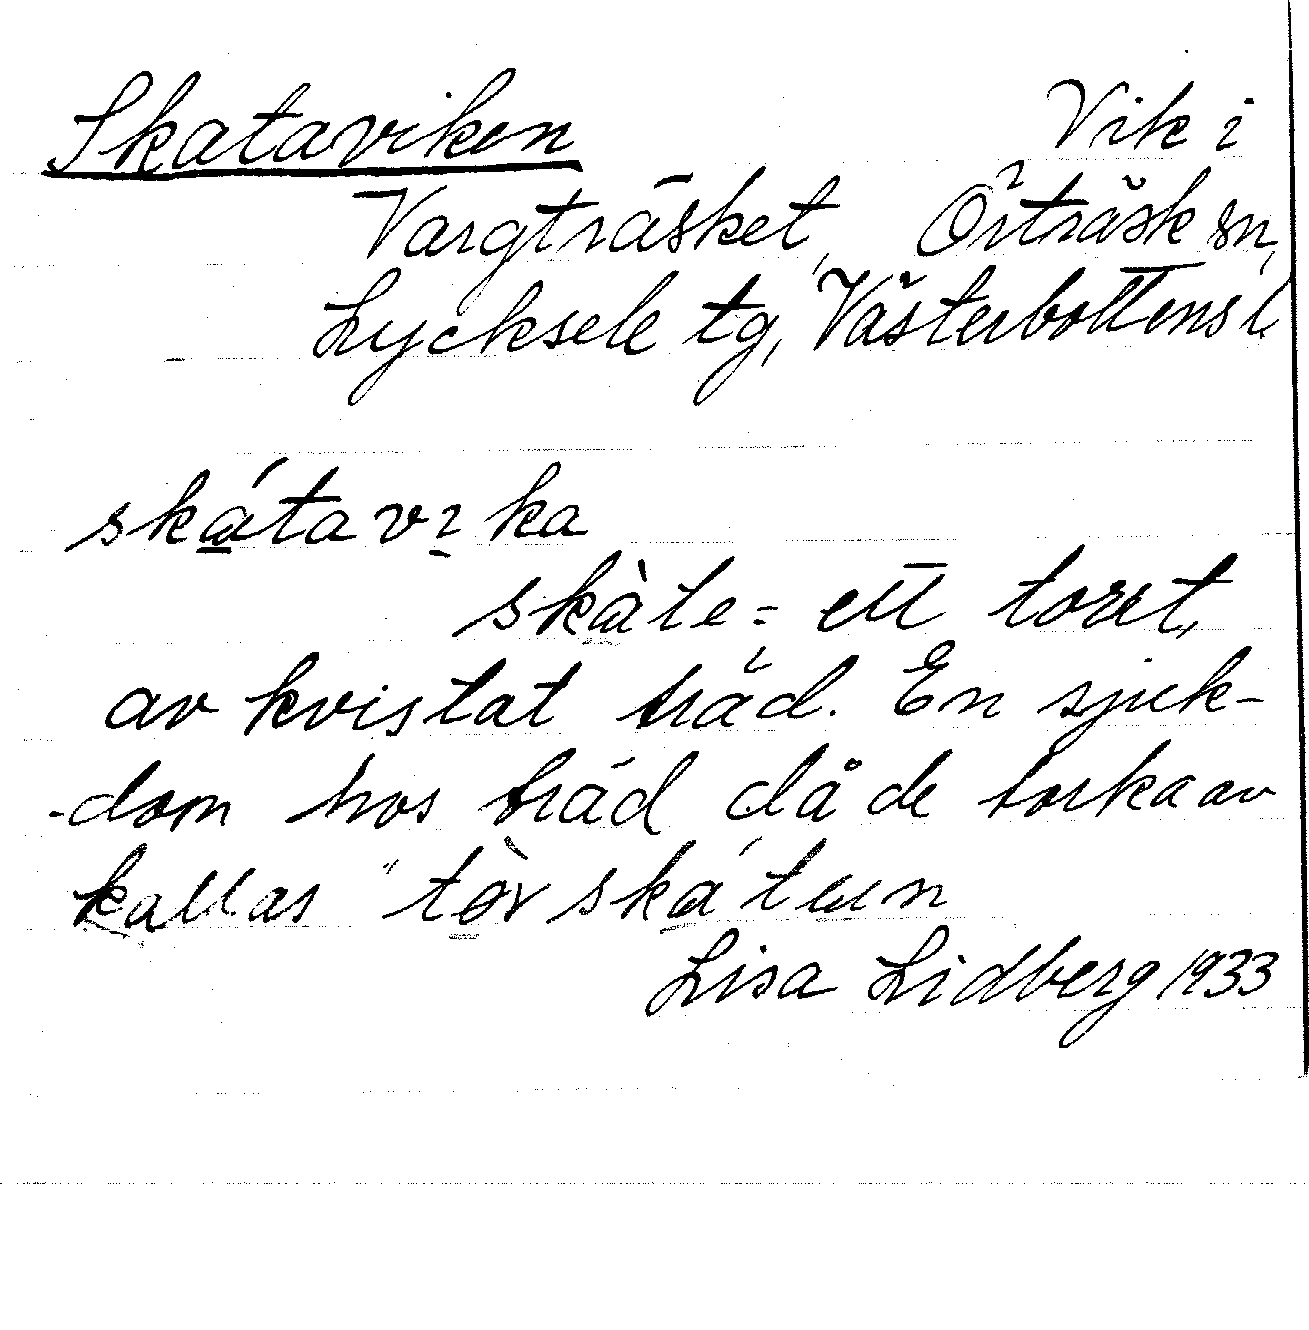 Skataviken Vik i
Vargträsket, Örträsk sn,
Lycksele tg, Västerbottens l.
skátavıka
skàte = ett toret,
av kvistat träd. En sjuk-
-dom hos träd då de torka av
kallas "tòrskátun
Lisa Lidberg 1933